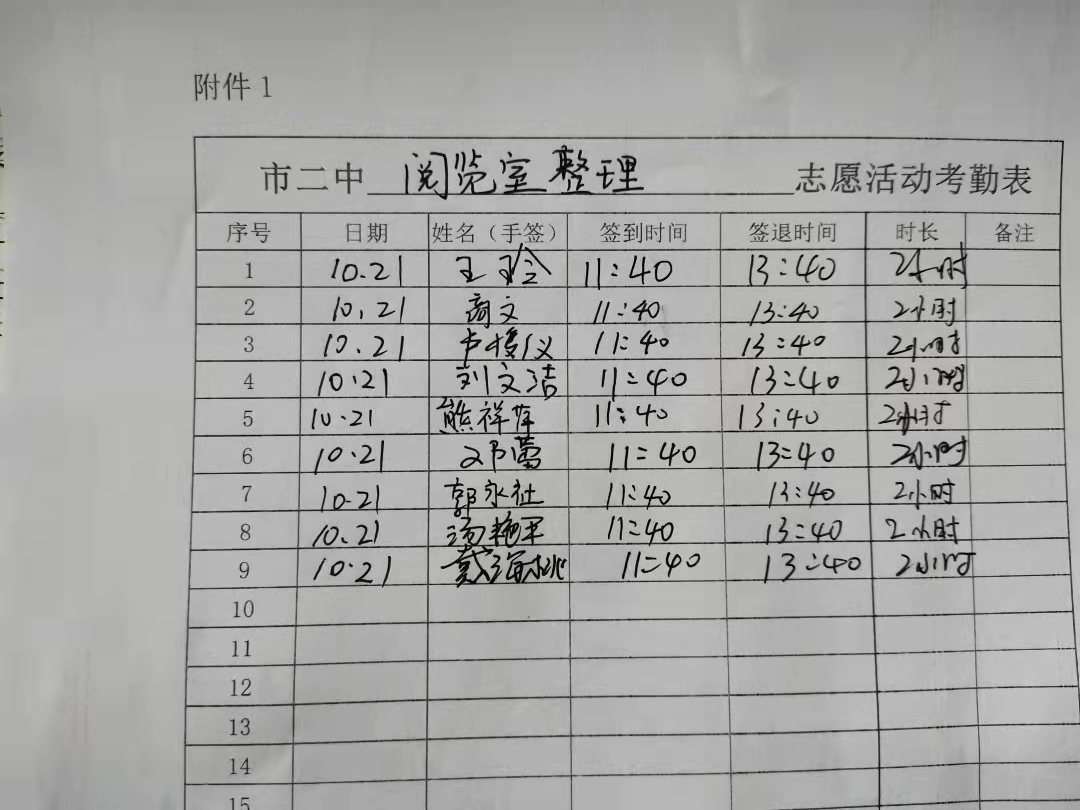 附件1
市二中 阅览室整理 志愿活动考勤表
序号 日期 姓名（手签） 签到时间 签退时间 时长 备注
1 10.21 王玲 11:40 13:40 2小时
2 10.21 文 11:40 13:40 2小时
3 10.21 卢 仪 11:40 13:40 2小时
4 10.21 刘文洁 11:40 13:40 2小时
5 10.21 熊祥萍 11:40 13:40 2小时
6 10.21 邓蕾 11:40 13:40 2小时
7 10.21 郭永社 11:40 13:40 2小时
8 10.21 汤艳军 11:40 13:40 2小时
9 10.21 戴海桃 11:40 13:40 2小时
10
11
12
13
14
15